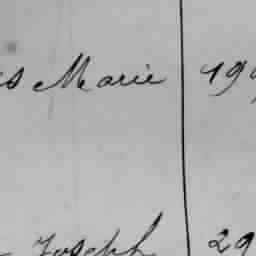 s Marie 19
Joseph 29